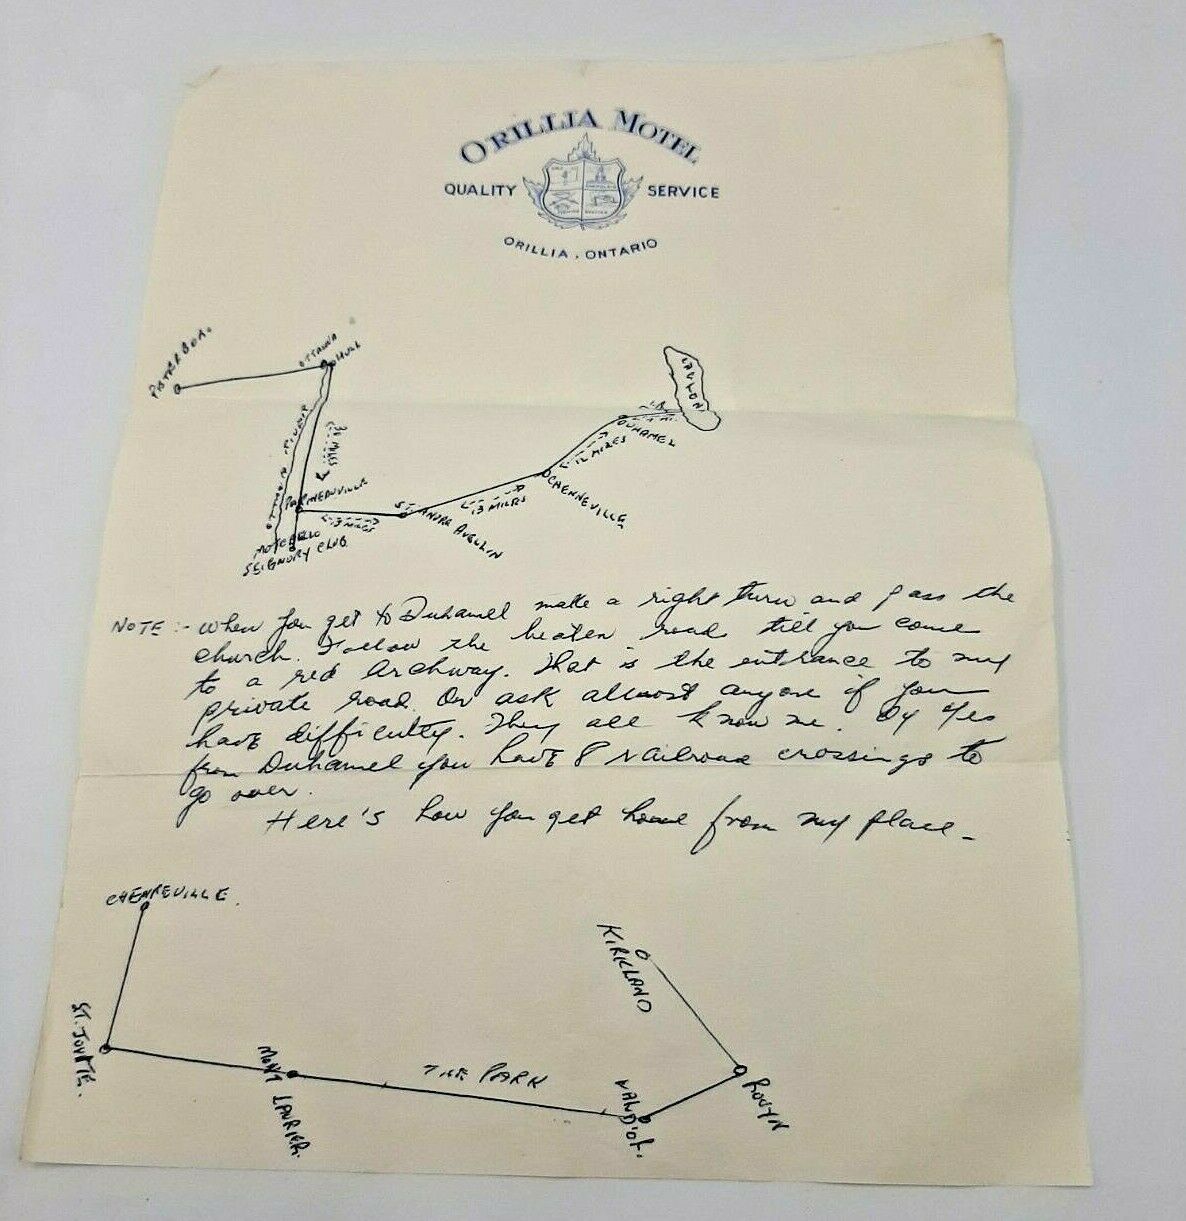 ORILLIA MOTEL
QUALITY SERVICE
ORILLIA, ONTARIO
PETERBORO.
OTTAWA
HULL
OTTAWA RIVER
MILES
PAPINEAUVILLE
MOTEBELLO
SEIGNORY CLUB.
MILES
ST. ANDRE AVELLIN
13 MILES
CHENNEVILLE
12 MILES
DUHAMEL
NOTE:- When you get to Duhamel make a right turn and pass the
church. Follow the beaten road till you come
to a red Archway. That is the entrance to my
private road. Or ask almost anyone if you
have difficulty. They all know me. Oh yes
from Duhamel you have 8 railroad crossings to
go over.
Here's how you get home from my place -
CHENNEVILLE.
ST. JOVITE.
MONT LAURIER.
THE PARK
VALD'OR.
ROUYN
KIRKLAND